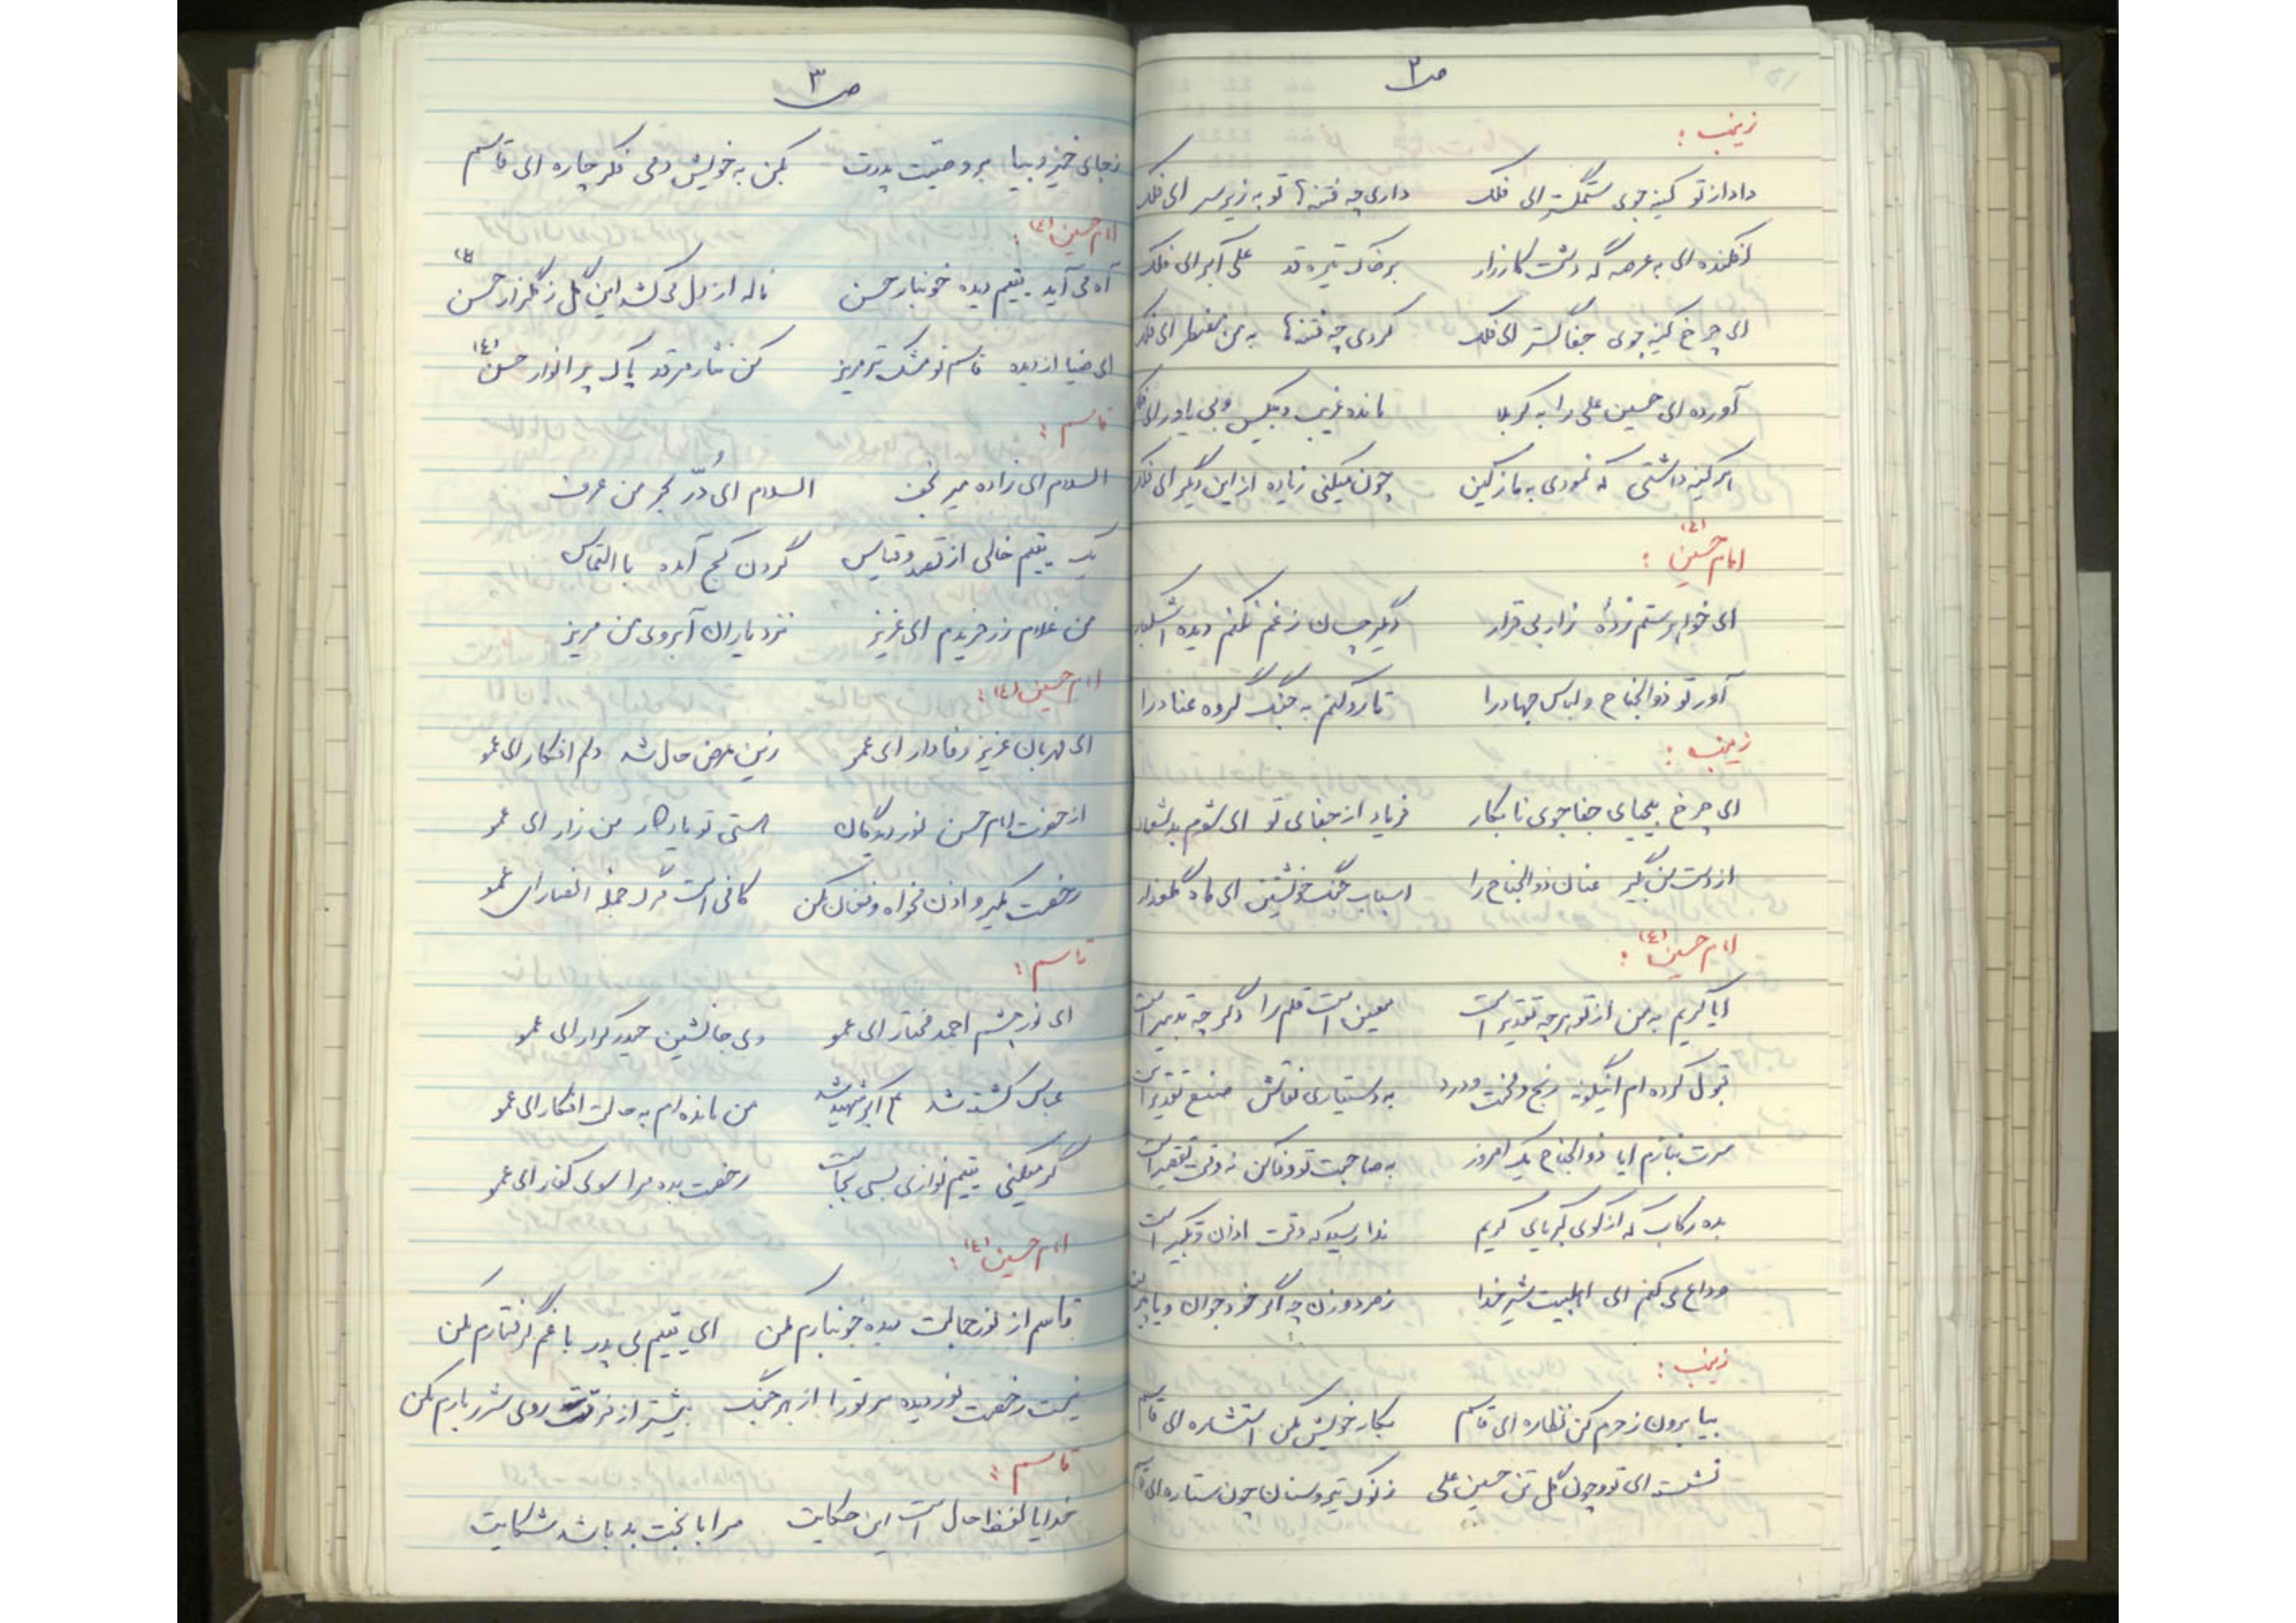 ص ۲
زینب :
داد از تو کینه جوی ستمگستر ای فلک داری چه فتنه‌ها تو به زیر سر ای فلک
افکنده ای به عرصه گه دشت کارزار بر خاک تیره قد علی اکبر ای فلک
ای چرخ کینه جوی جفا گستر ای فلک کردی چه فتنه‌ها به من مضطر ای فلک
آورده ای حسین علی را به کربلا مانده غریب و بیکس و بی یاور ای
هر کینه داشتی که نمودی به ما ز کین چون میکنی زیاده از این دیگر ای فلک
امام حسین (ع) :
ای خواهر ستم زدهٔ زار بی قرار دیگر چسان ز غم نکنم دیده اشکبار
آور تو ذوالجناح و لباس جهاد را تا رو کنم به جنگ گروه عناد را
زینب :
ای چرخ بیحیای جفا جوی نابکار فریاد از جفای تو ای شوم بد شعار
از دست من بگیر عنان ذوالجناح را اسباب جنگ خویشتن ای ماه گلعذار
امام حسین (ع) :
ایا کریم به من از تو هر چه تقدیر است معین است قلم را دگر چه تدبیر است
قبول کرده ام اینگونه رنج و محنت و درد به دستیاری نقاش صنع تقدیر است
سرت بنازم ایا ذوالجناح یک امروز به صاحبت تو وفا کن نه وقت تقصیر است
بده رکاب که از کوی کبریای کریم ندا رسید که وقت اذان و تکبیر است
وداع می کنم ای اهلبیت شیر خدا ز مرد و زن چه اگر خرد و جوان و یا پیر
زینب :
بیا برون ز حرم کن نظاره ای قاسم بکار خویش بکن استشاره ای قاسم
نشسته ای تو و چون گل تن حسین علی ز نوک تیر و سنان چون ستاره ای
ص ۳
ز جای خیز و بیا بر وصیت پدرت بکن به خویش دمی فکر چاره ای قاسم
امام حسین (ع) :
آه می آید یتیم دیده خونبار حسن ناله از دل می کشد این گل ز گلزار حسن (ع)
ای ضیا از دیده قاسم تو مشک تر مریز کن نثار مرقد پاک پر انوار حسن (ع)
قاسم :
السلام ای زاده میر نجف السلام ای دُرّ بحر من عرف
یک یتیم خالی از نقد و قیاس گردن کج آمده با التماس
من غلام زر خریدم ای عزیز نزد یاران آبروی من مریز
امام حسین (ع) :
ای مهربان عزیز وفادار ای عمو زین عرض حال شد دلم افکار ای عمو
از حضرت امام حسن نور دیدگان هستی تو یادگار من زار ای عمو
رخصت مگیر و اذن مخواه و فغان مکن کافی است مرگ جمله انصار ای عمو
قاسم :
ای نور چشم احمد مختار ای عمو وی جانشین حیدر کرار ای عمو
عباس کشته شد اکبر شهید شد من مانده ام به حالت افکار ای عمو
گر میکنی یتیم نوازی بسی بجاست رخصت بده مرا سوی کفار ای عمو
امام حسین (ع) :
قاسم از نور جمالت دیده خونبارم مکن ای یتیم بی پدر با غم گرفتارم مکن
نیست رخصت نور دیده مر تو را از بهر جنگ بیشتر از فرقت روی شرر بارم مکن
قاسم :
خدایا حال است این حکایت مرا با بخت بد باشد شکایت